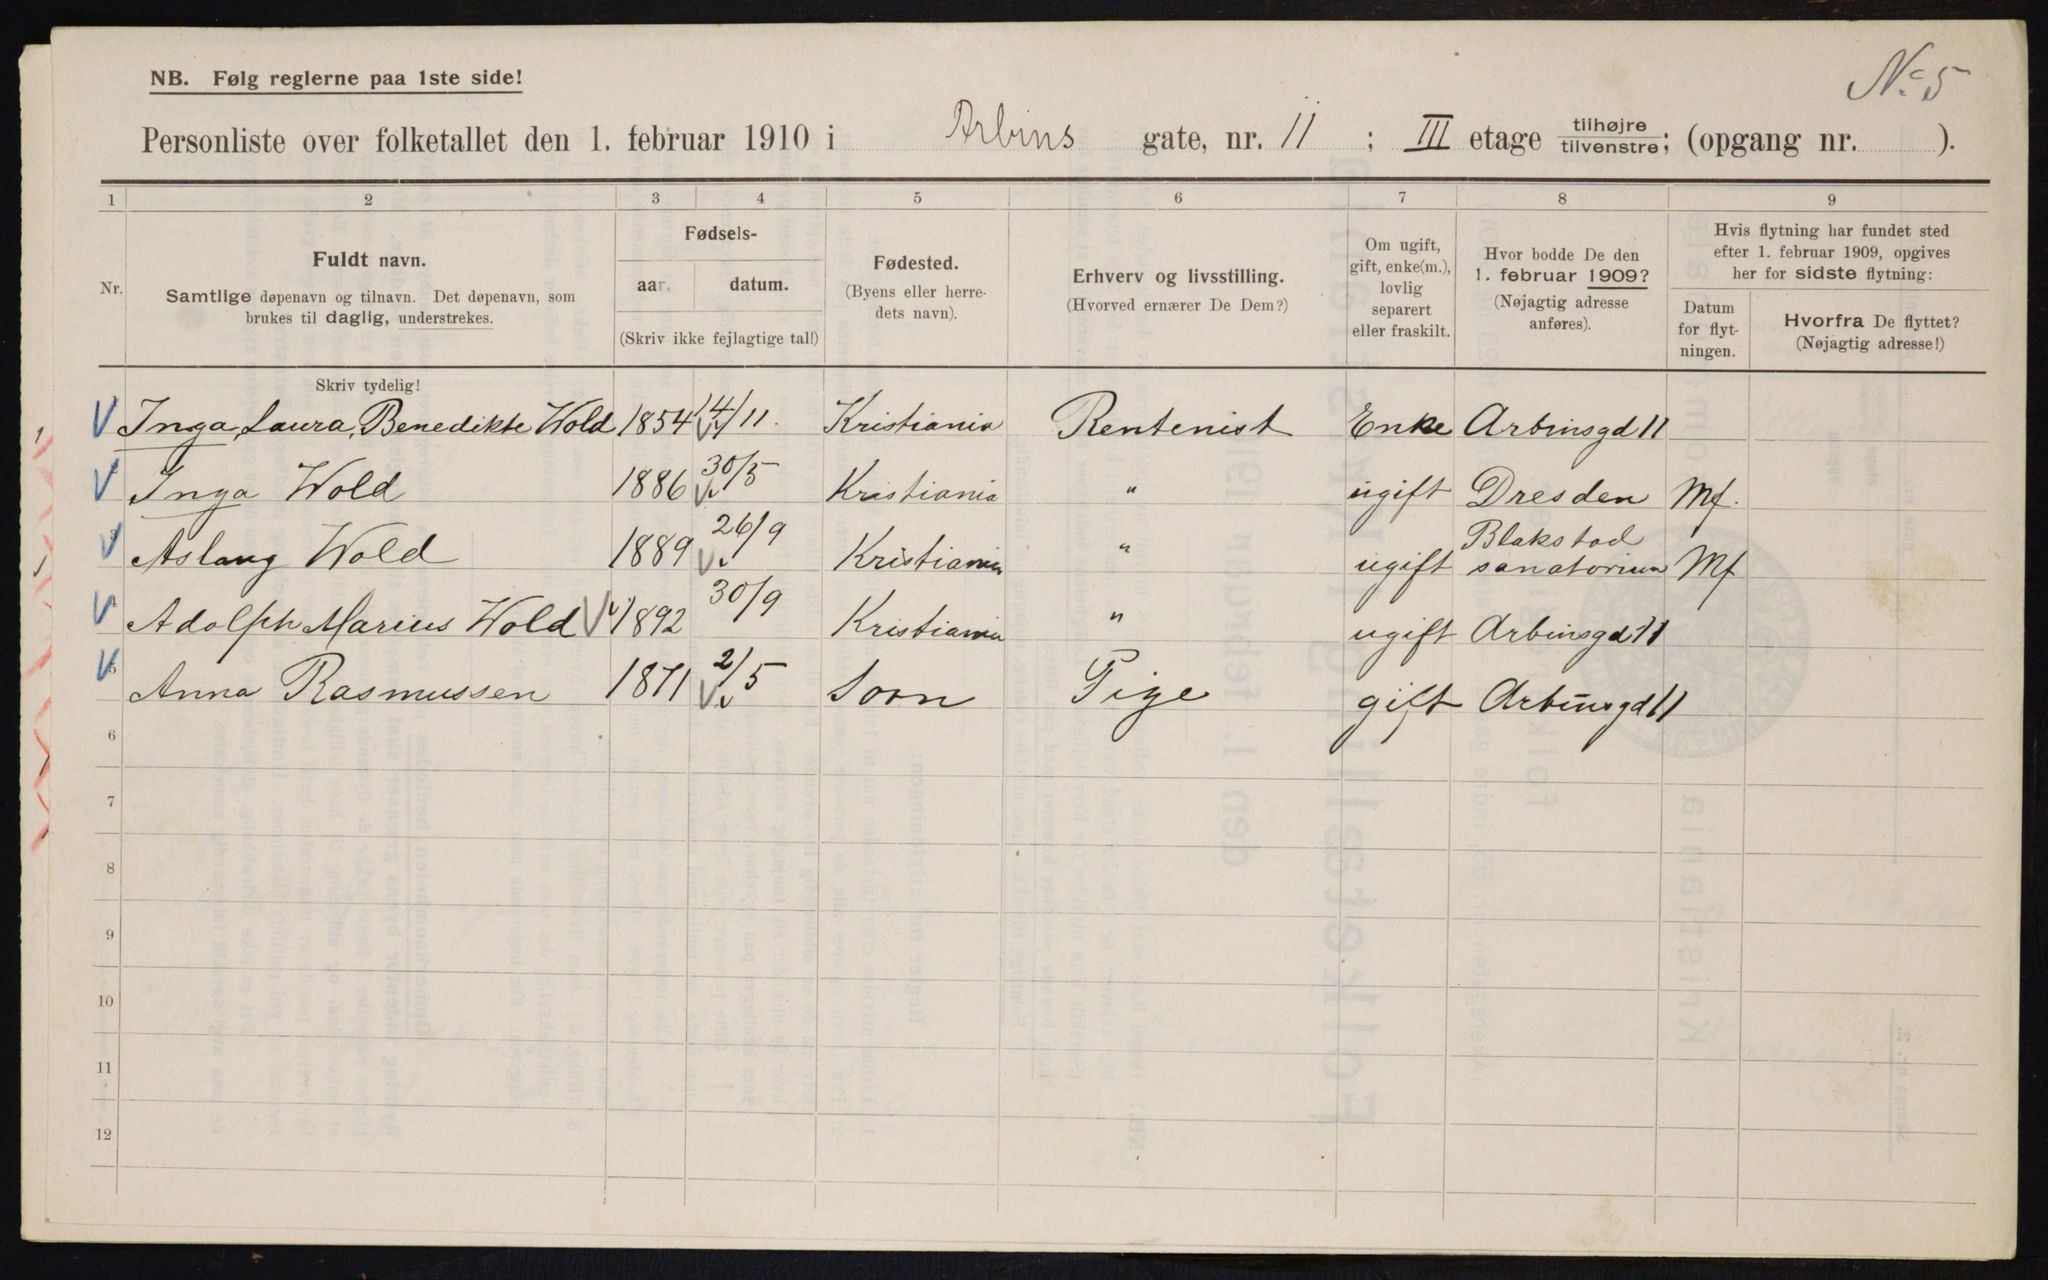 Nº 5
NB. Følg reglerne paa 1ste side!
Personliste over folketallet den 1. februar 1910 i Arbins gate, nr. 11 ; III etage tilhøjre tilvenstre; (opgang nr. ).
1 2 3 4 5 6 7 8 9
Nr.
Fuldt navn.
Samtlige døpenavn og tilnavn. Det døpenavn, som
brukes til daglig, understrekes.
Fødsels-
aar. datum.
(Skriv ikke fejlagtige tal!)
Fødested.
(Byens eller herre-
dets navn).
Erhverv og livsstilling.
(Hvorved ernærer De Dem?)
Om ugift,
gift, enke(m.),
lovlig
separert
eller fraskilt.
Hvor bodde De den
1. februar 1909?
(Nøjagtig adresse
anføres).
Hvis flytning har fundet sted
efter 1. februar 1909, opgives
her for sidste flytning:
Datum
for flyt-
ningen.
Hvorfra De flyttet?
(Nøjagtig adresse!)
Skriv tydelig!
Inga Laura Benedikte Wold 1854 4/11. Kristiania Rentenist Enke Arbinsgd 11
Inga Wold 1886 30/5 Kristiania " ugift Dresden Mf.
Aslaug Wold 1889 26/9 Kristiania " ugift Blakstad sanatorium Mf
4 Adolph Marius Wold 1892 30/9 Kristiania " ugift Arbinsgd 11
5 Anna Rasmussen 1871 2/5 Soon Pige gift Arbinsgd 11
6
7
8
9
10
11
12